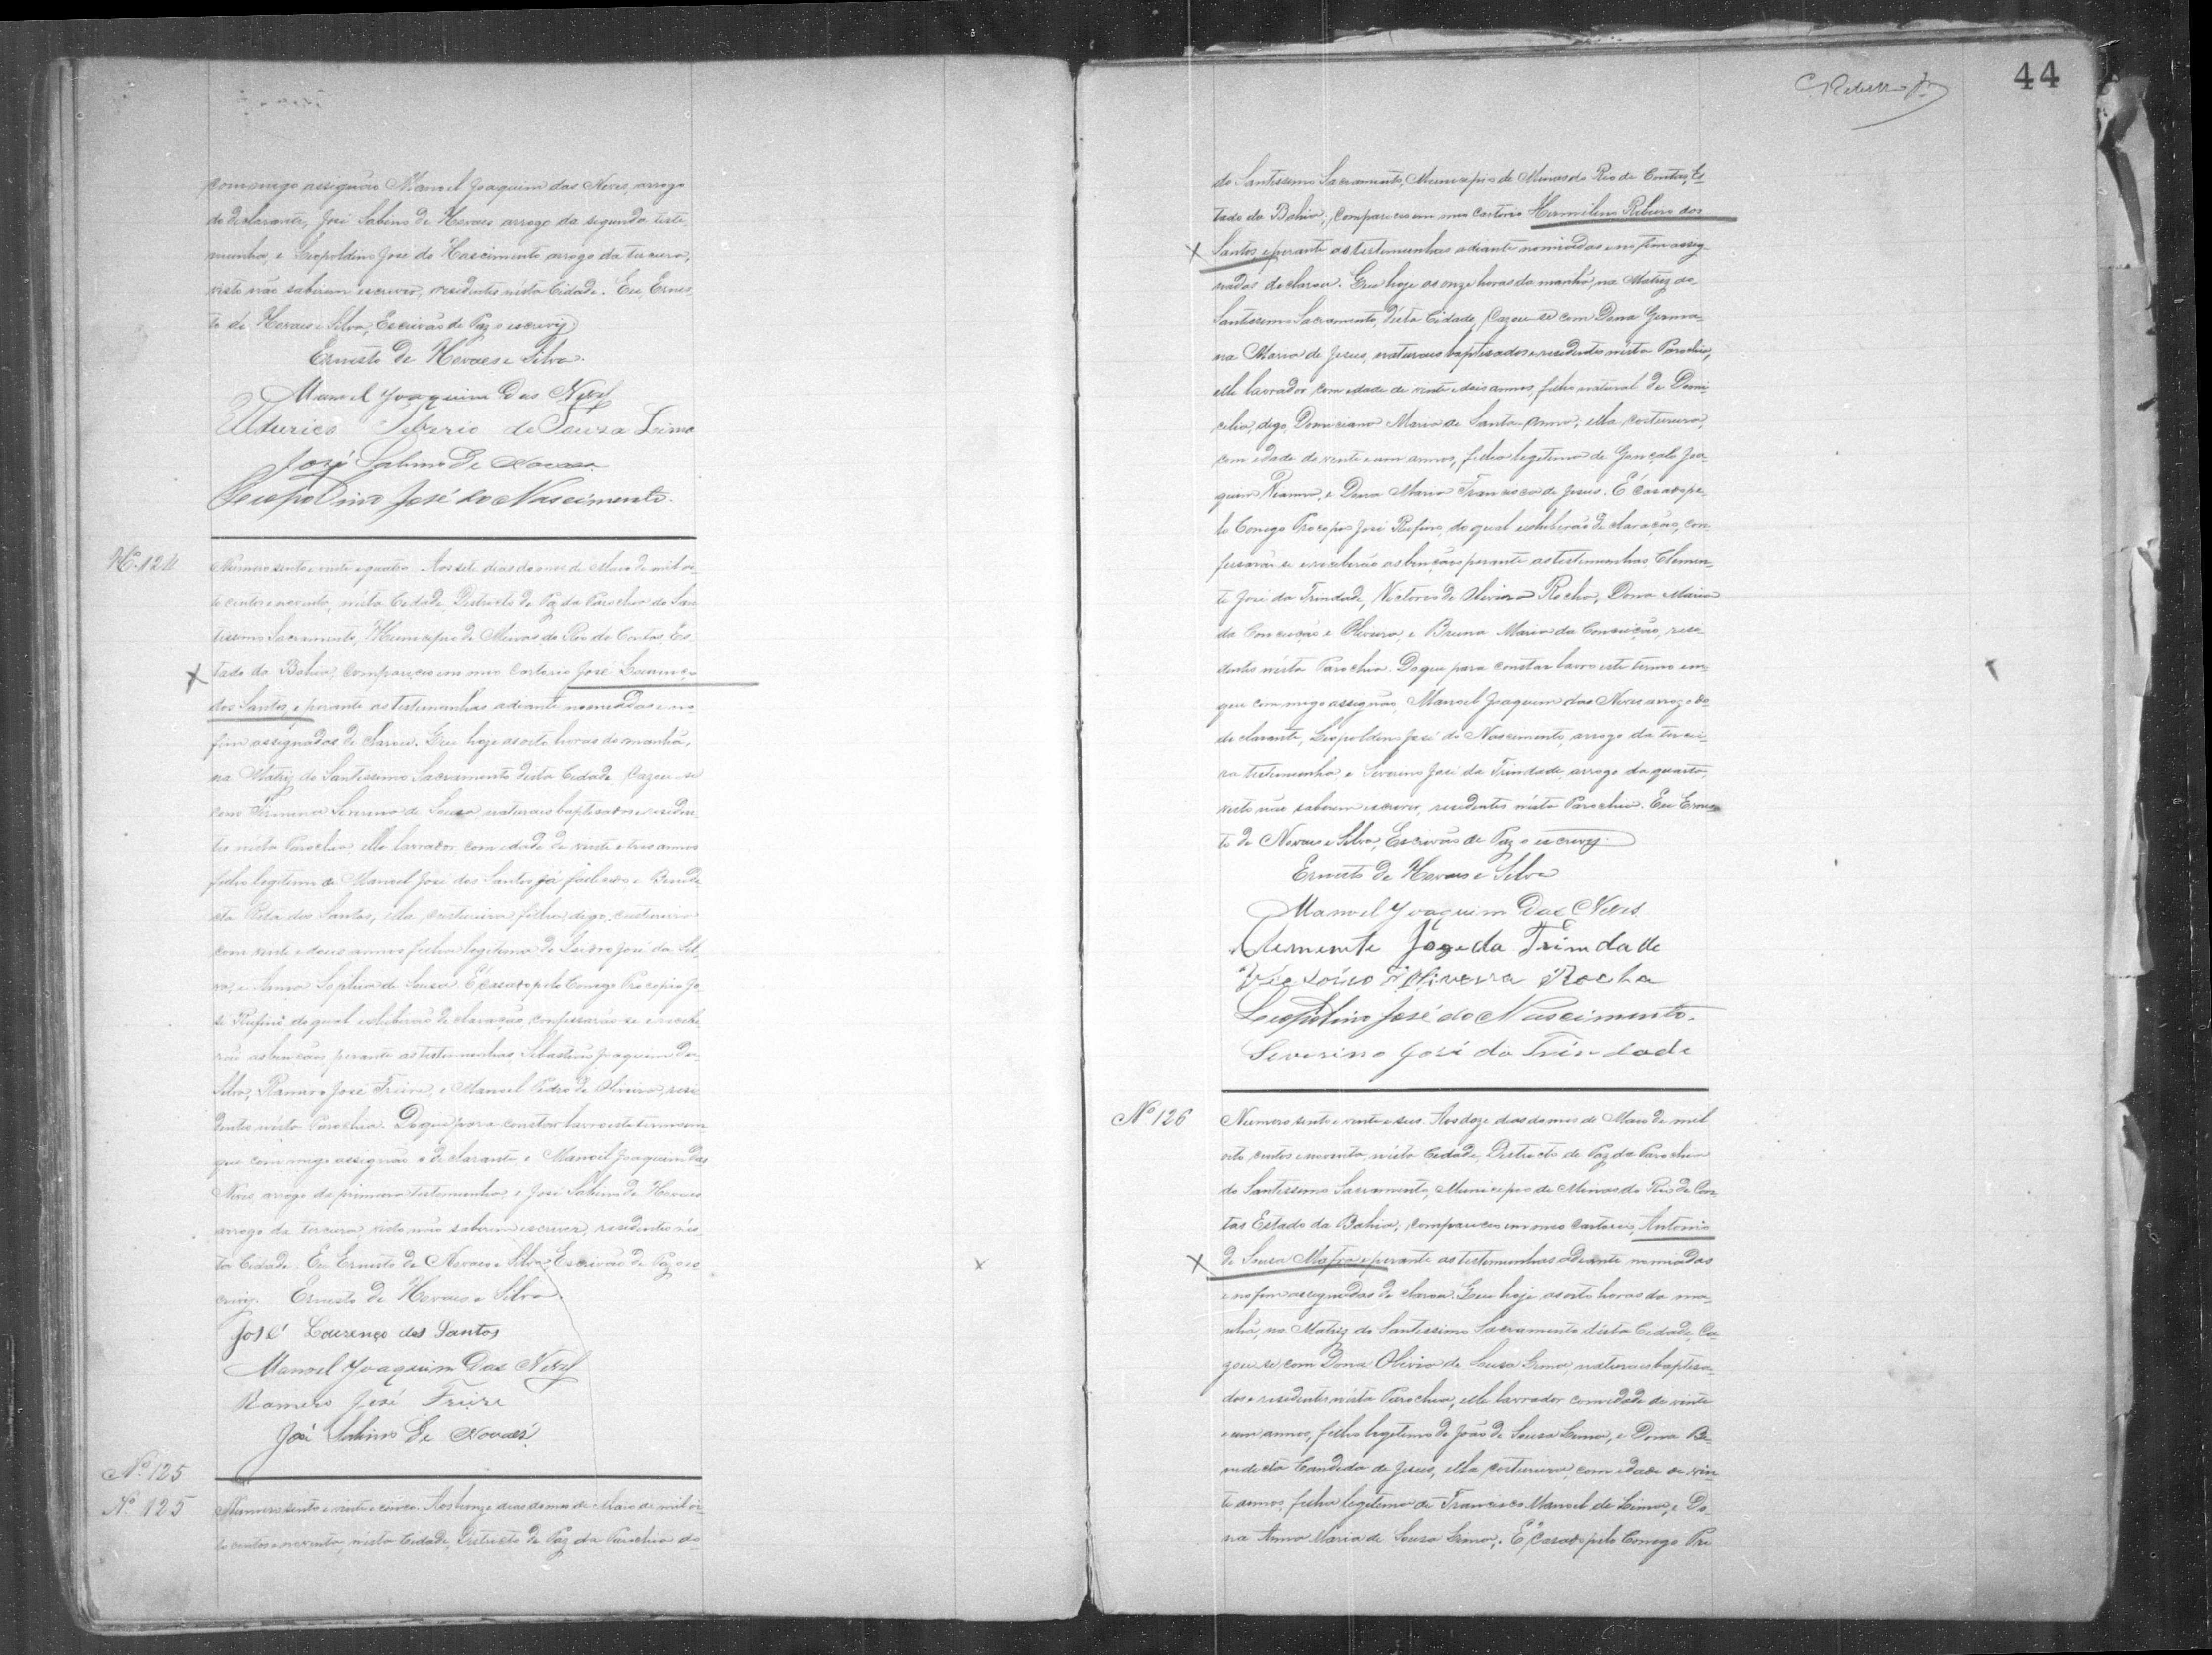 commigo assignão Manoel Joaquim das Neves, arrogo
do declarante, José Sabino de Novaes arrogo da segunda teste-
munha, e Leopoldino José do Nascimento arrogo da terceira,
visto não saberem escrever, residentes nésta Cidade. Eu, Ernes-
to de Novaes e Silva, Escrivão de Paz o escrevy
Ernesto de Novaes e Silva.
Manoel Joaquim Das Neves
Tiberio de Souza Lima
José Sabino De Novaes
Leopoldino José do Nascimento.
Nº 124
Numero sento e vinte e quatro. Aos sete dias do mes de Maio de mil oi-
to centos e noventa, nésta Cidade, Districto de Paz da Parochia do San-
tissimo Sacramento, Municipio de Minas do Rio de Contas, Es-
tado da Bahia, compareceo em meo Cartorio José Lourenço
dos Santos, e perante as testemunhas adiante nomeadas e no
fim assignadas declarou. Que hoje as oito horas da manhã,
na Matriz do Santissimo Sacramento désta Cidade, Cazou-se
com Firmina Severina de Sousa, naturais baptisados e residen-
tes nésta Parochia, elle lavrador, com edade de vinte e tres annos
filho legitimo de Manoel José dos Santos já falecido e Benedi-
cta Rita dos Santos, ella, costureira filha, digo, custureira
com vinte e dous annos filha legitima de Isidro José da Sil-
va, e Anna de Sousa. É casado pelo Conego Procopio Jo-
sé Rufino, do qual exhiberão declaração, confessarão-se e recebe-
rão as bençãos perante as testemunhas Sebastião Joaquim da
Silva, Ramiro José Freire, e Manoel Pedro de Oliveira, resi-
dentes nésta Parochia. Do que para constar lavro este termo em
que commigo assignão o declarante, e Manoel Joaquim das
Neves, arrogo da primeira testemunha, e José Sabino de Novaes
arrogo da terceira, visto não saberem escrever, residentes nés-
ta Cidade. Eu Ernesto de Novaes e Silva Escrivão de Paz o es-
crevy. Ernesto de Novaes e Silva.
José Lourenço dos Santos
Manoel Joaquim Das Neves
Ramiro José Freire
José Sabino De Novaes
Nº 125
Nº 125
Numero sento e vinte e cinco. Aos honze dias do mes de Maio de mil oi-
to centos e noventa, nésta Cidade, Districto de Paz da Parochia do
44
do Santissimo Sacramento, Municipio de Minas do Rio de Contas, Es-
tado da Bahia, compareceo em meo Cartorio Hermilino Ribeiro dos
Santos, e perante as testemunhas adiante nomeadas e no fim assig-
nadas declarou. Que hoje as onze horas da manhã, na Matriz do
Santissimo Sacramento, désta Cidade, Cazou-se com Dona Germa-
na Maria de Jesus, naturaes baptisados e residentes nésta Parochia,
elle lavrador com edade de vinte e dois annos, filho natural de Domi-
cilia, digo, Domiciana Maria de Santa Anna, ella costureira,
com edade de vinte e um annos, filha legitima de Gonçalo Joa-
quim Vianna, e Dona Maria Francisca de Jesus. É casado pe-
lo Conego Procopio José Rufino, do qual exhiberão declaração, con-
fessarão-se e receberão as bençãos perante as testemunhas Clemen-
te José da Trindade, Victorio de Oliveira Rocha, Dona Maria
da Conceição e Oliveira, e Bruna Maria da Conceição, resi-
dentes nésta Parochia. Do que para constar lavro este termo em
que commigo assignão, Manoel Joaquim das Neves arrogo do
declarante, Leopoldino José do Nascimento, arrogo da tercei-
ra testemunha e Severino José da Trindade arrogo da quarta,
visto não saberem escrever, residentes nésta Parochia. Eu Ernes-
to de Novaes e Silva, Escrivão de Paz o escrevy.
Ernesto de Novaes e Silva
Manoel Joaquim Das Neves
Clemente Joze da Trindade
Victorio d'Oliveira Rocha
Leopoldino José do Nascimento.
Severino José da Trindade
Nº 126
Numero sento e vinte e seis. Aos doze dias do mes de Maio de mil
oito centos e noventa, nésta Cidade, Districto de Paz da Parochia
do Santissimo Sacramento, Municipio de Minas do Rio de Con-
tas Estado da Bahia, compareceo em meo Cartorio, Antonio
de Sousa Mafra, e perante as testemunhas adiante nomiadas
e no fim assignadas declarou. Que hoje as oito horas da ma-
nhã, na Matriz do Santissimo Sacramento désta Cidade, Ca-
zou-se com Dona Olivia de Sousa Lima, naturaes baptisa-
dos e residentes nésta Parochia, elle lavrador com edade de vinte
e um annos, filho legitimo de João de Sousa Lima, e Dona Be-
nedicta Candida de Jesus, ella costureira, com edade de vin-
te annos, filha legitima de Francisco Manoel de Lima, e Do-
na Anna Maria de Sousa Lima. É Casado pelo Conego Pro